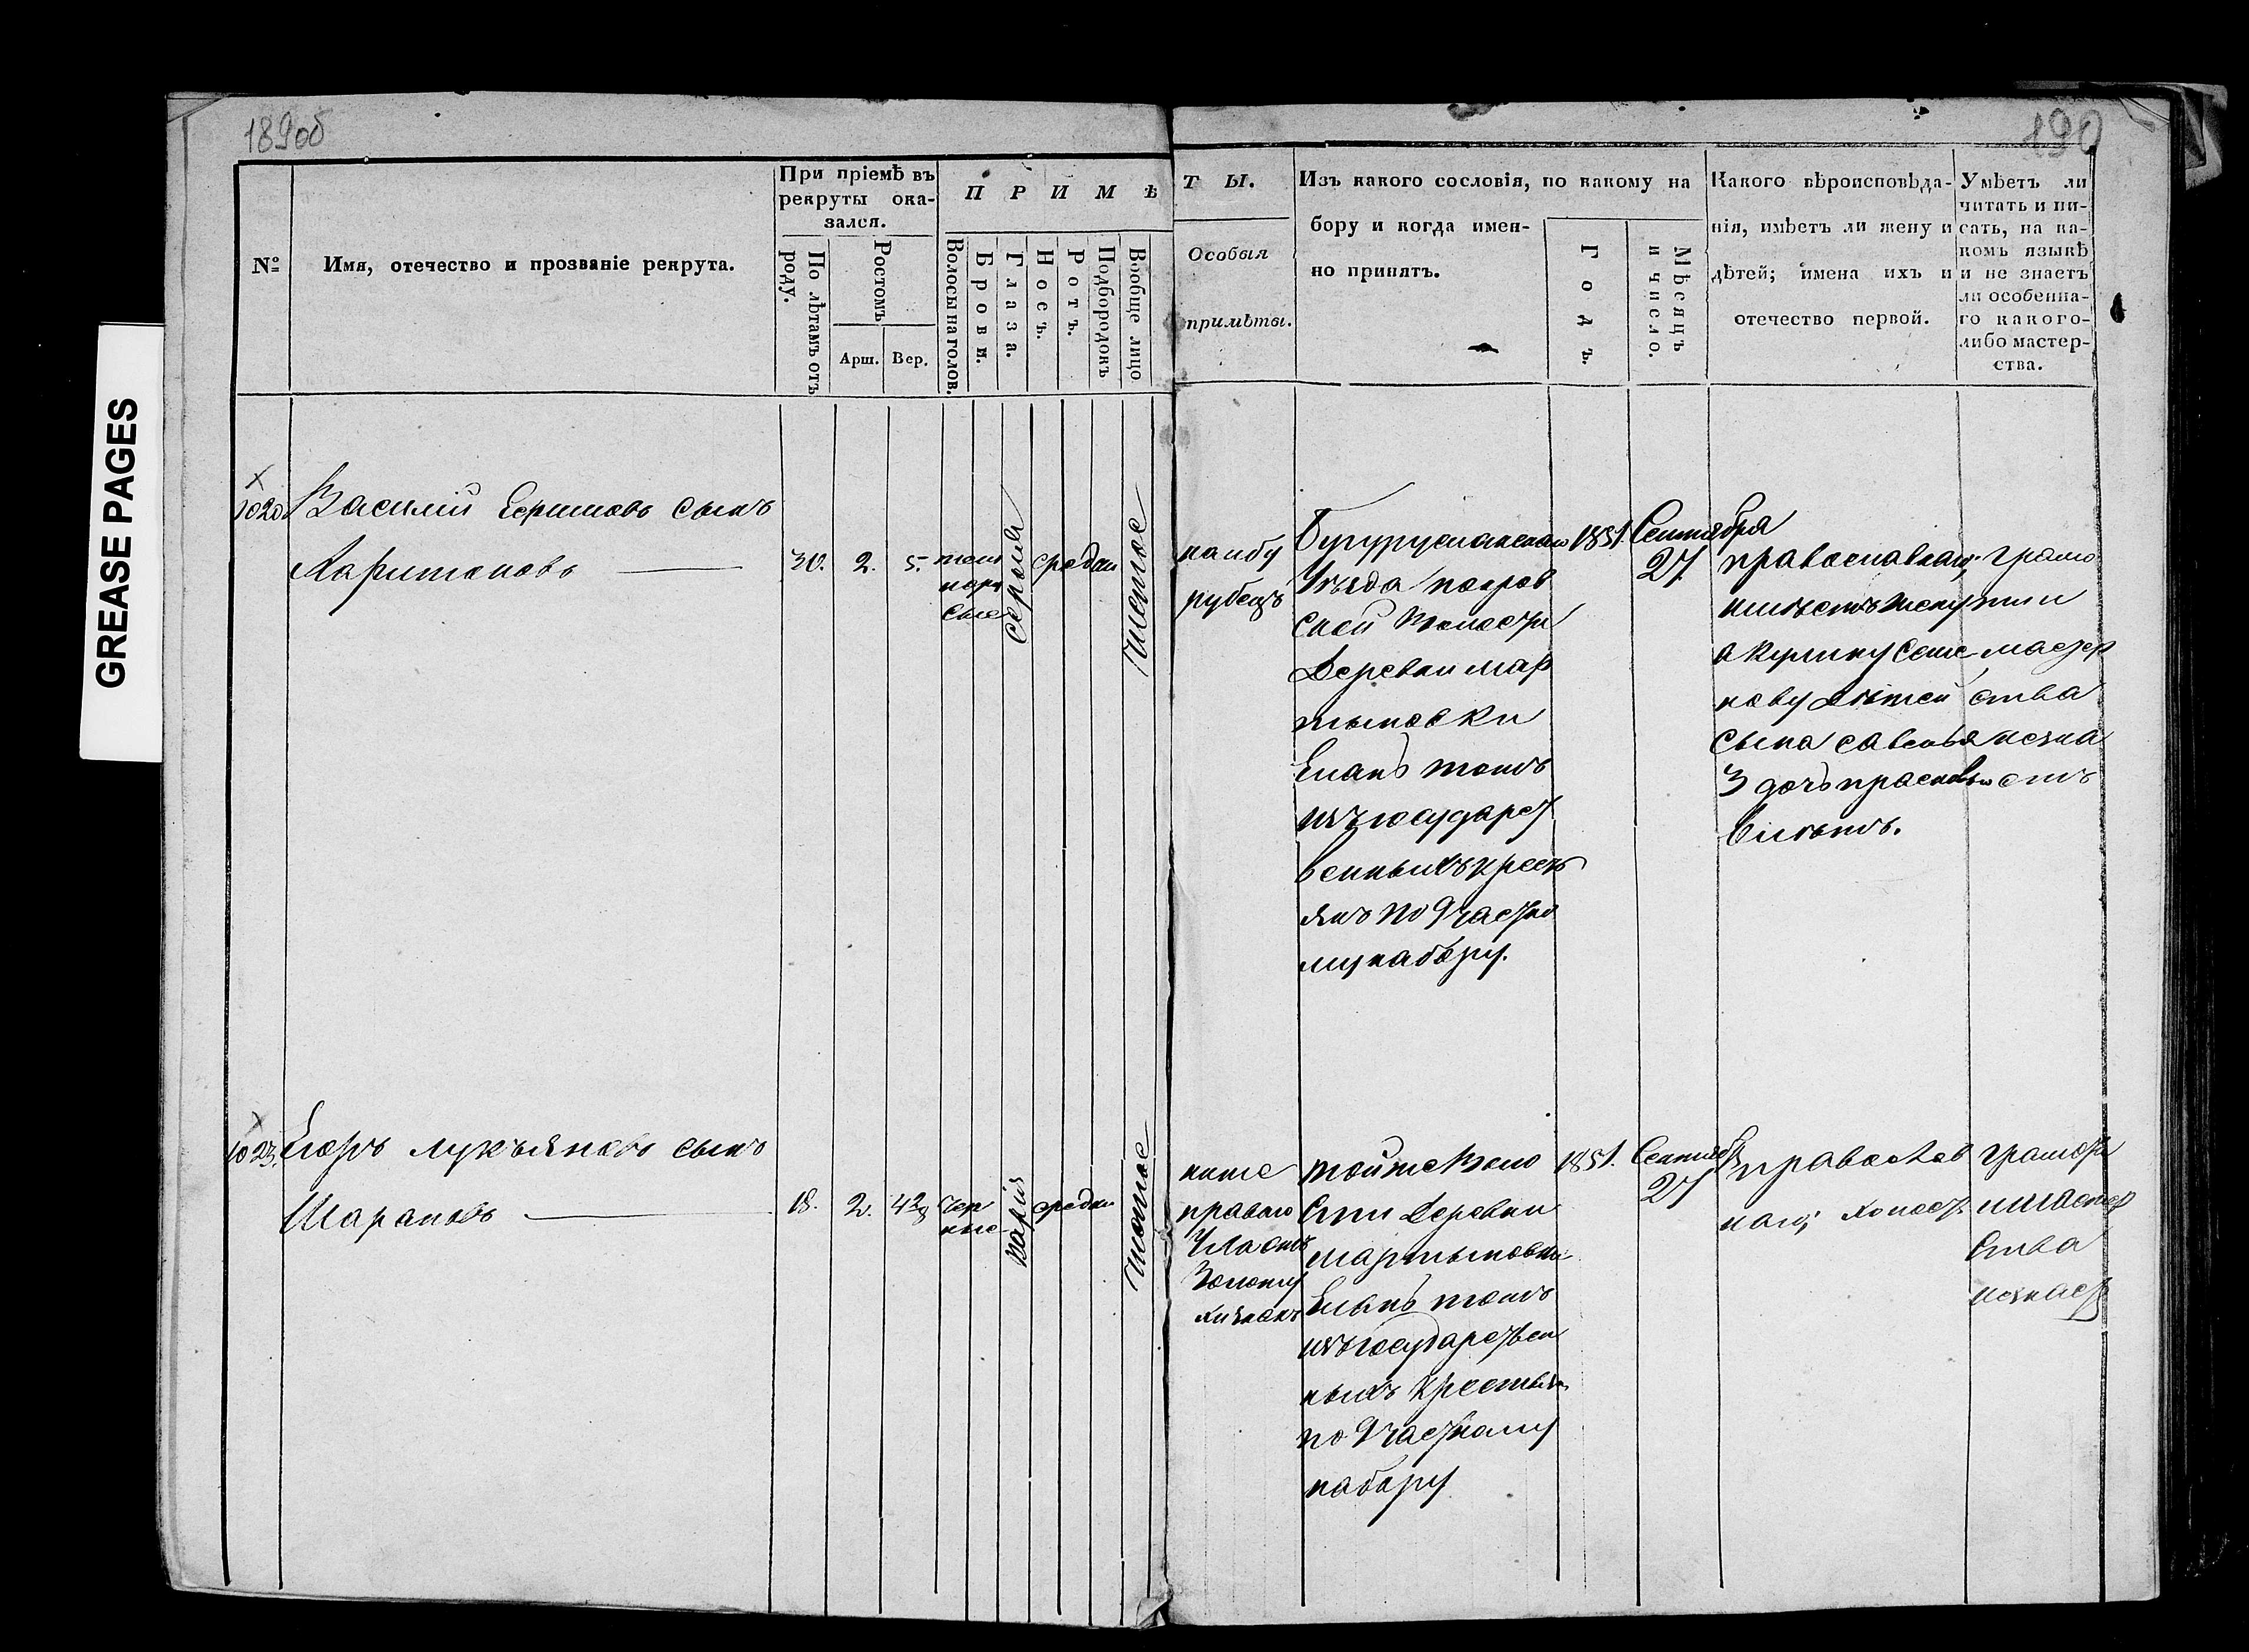 189об
190
GREASE PAGES
№
Имя, отечество и прозваніе рекрута.
При пріемѣ въ
рекруты ока-
зался.
По лѣтамъ отъ
роду.
Ростомъ
Арш.
Вер.
ПРИМѢ
Волосы на голов.
Брови.
Глаза.
Носъ.
Ротъ.
Подбородокъ
Вообще лицо
ТЫ.
Особыя
примѣты.
Изъ какого сословія, по какому на
бору и когда имен-
но принятъ.
Годъ.
Мѣсяцъ
и число.
Какого вѣроисповѣда-
нія, имѣетъ ли жену и
дѣтей; имена ихъ и
отечество первой.
Умѣетъ ли
читать и пи-
сать, на ка-
комъ языкѣ
и не знаетъ
ли особенна-
го какого-
либо мастер-
ства.
1020
Василій сынъ
Харитоновъ
30.
2.
5.
темн
сые
серые
средни
чистое
на лбу
рубецъ
Бугурусланскаго
Уѣзда покров
ской Волости
Деревни мар
тыновки
Еланъ тожъ
изъ государст
венныхъ крест
янъ по 9 частно
му набору.
1851.
Сентября
27.
православнаго,
имѣетъ жену
акулину Семе
нову дѣтей
сына савелья
3 дочь прасковью
6 лѣтъ.
грамо
ты и
мастер
ства
незна
етъ
1023.
Егоръ лукъяновъ сынъ
Шарановъ
18.
2.
4 2/8
чер
ные
каріе
средни
чистое
ниже
праваго
тойже Воло
сти Деревни
мартыновки
Еланъ тожъ
изъ государствен
ныхъ крестьян
по 9 частному
набору
1851.
Сентяб
27
православ
наго, холост
грамоты
имастер
ства
незнает